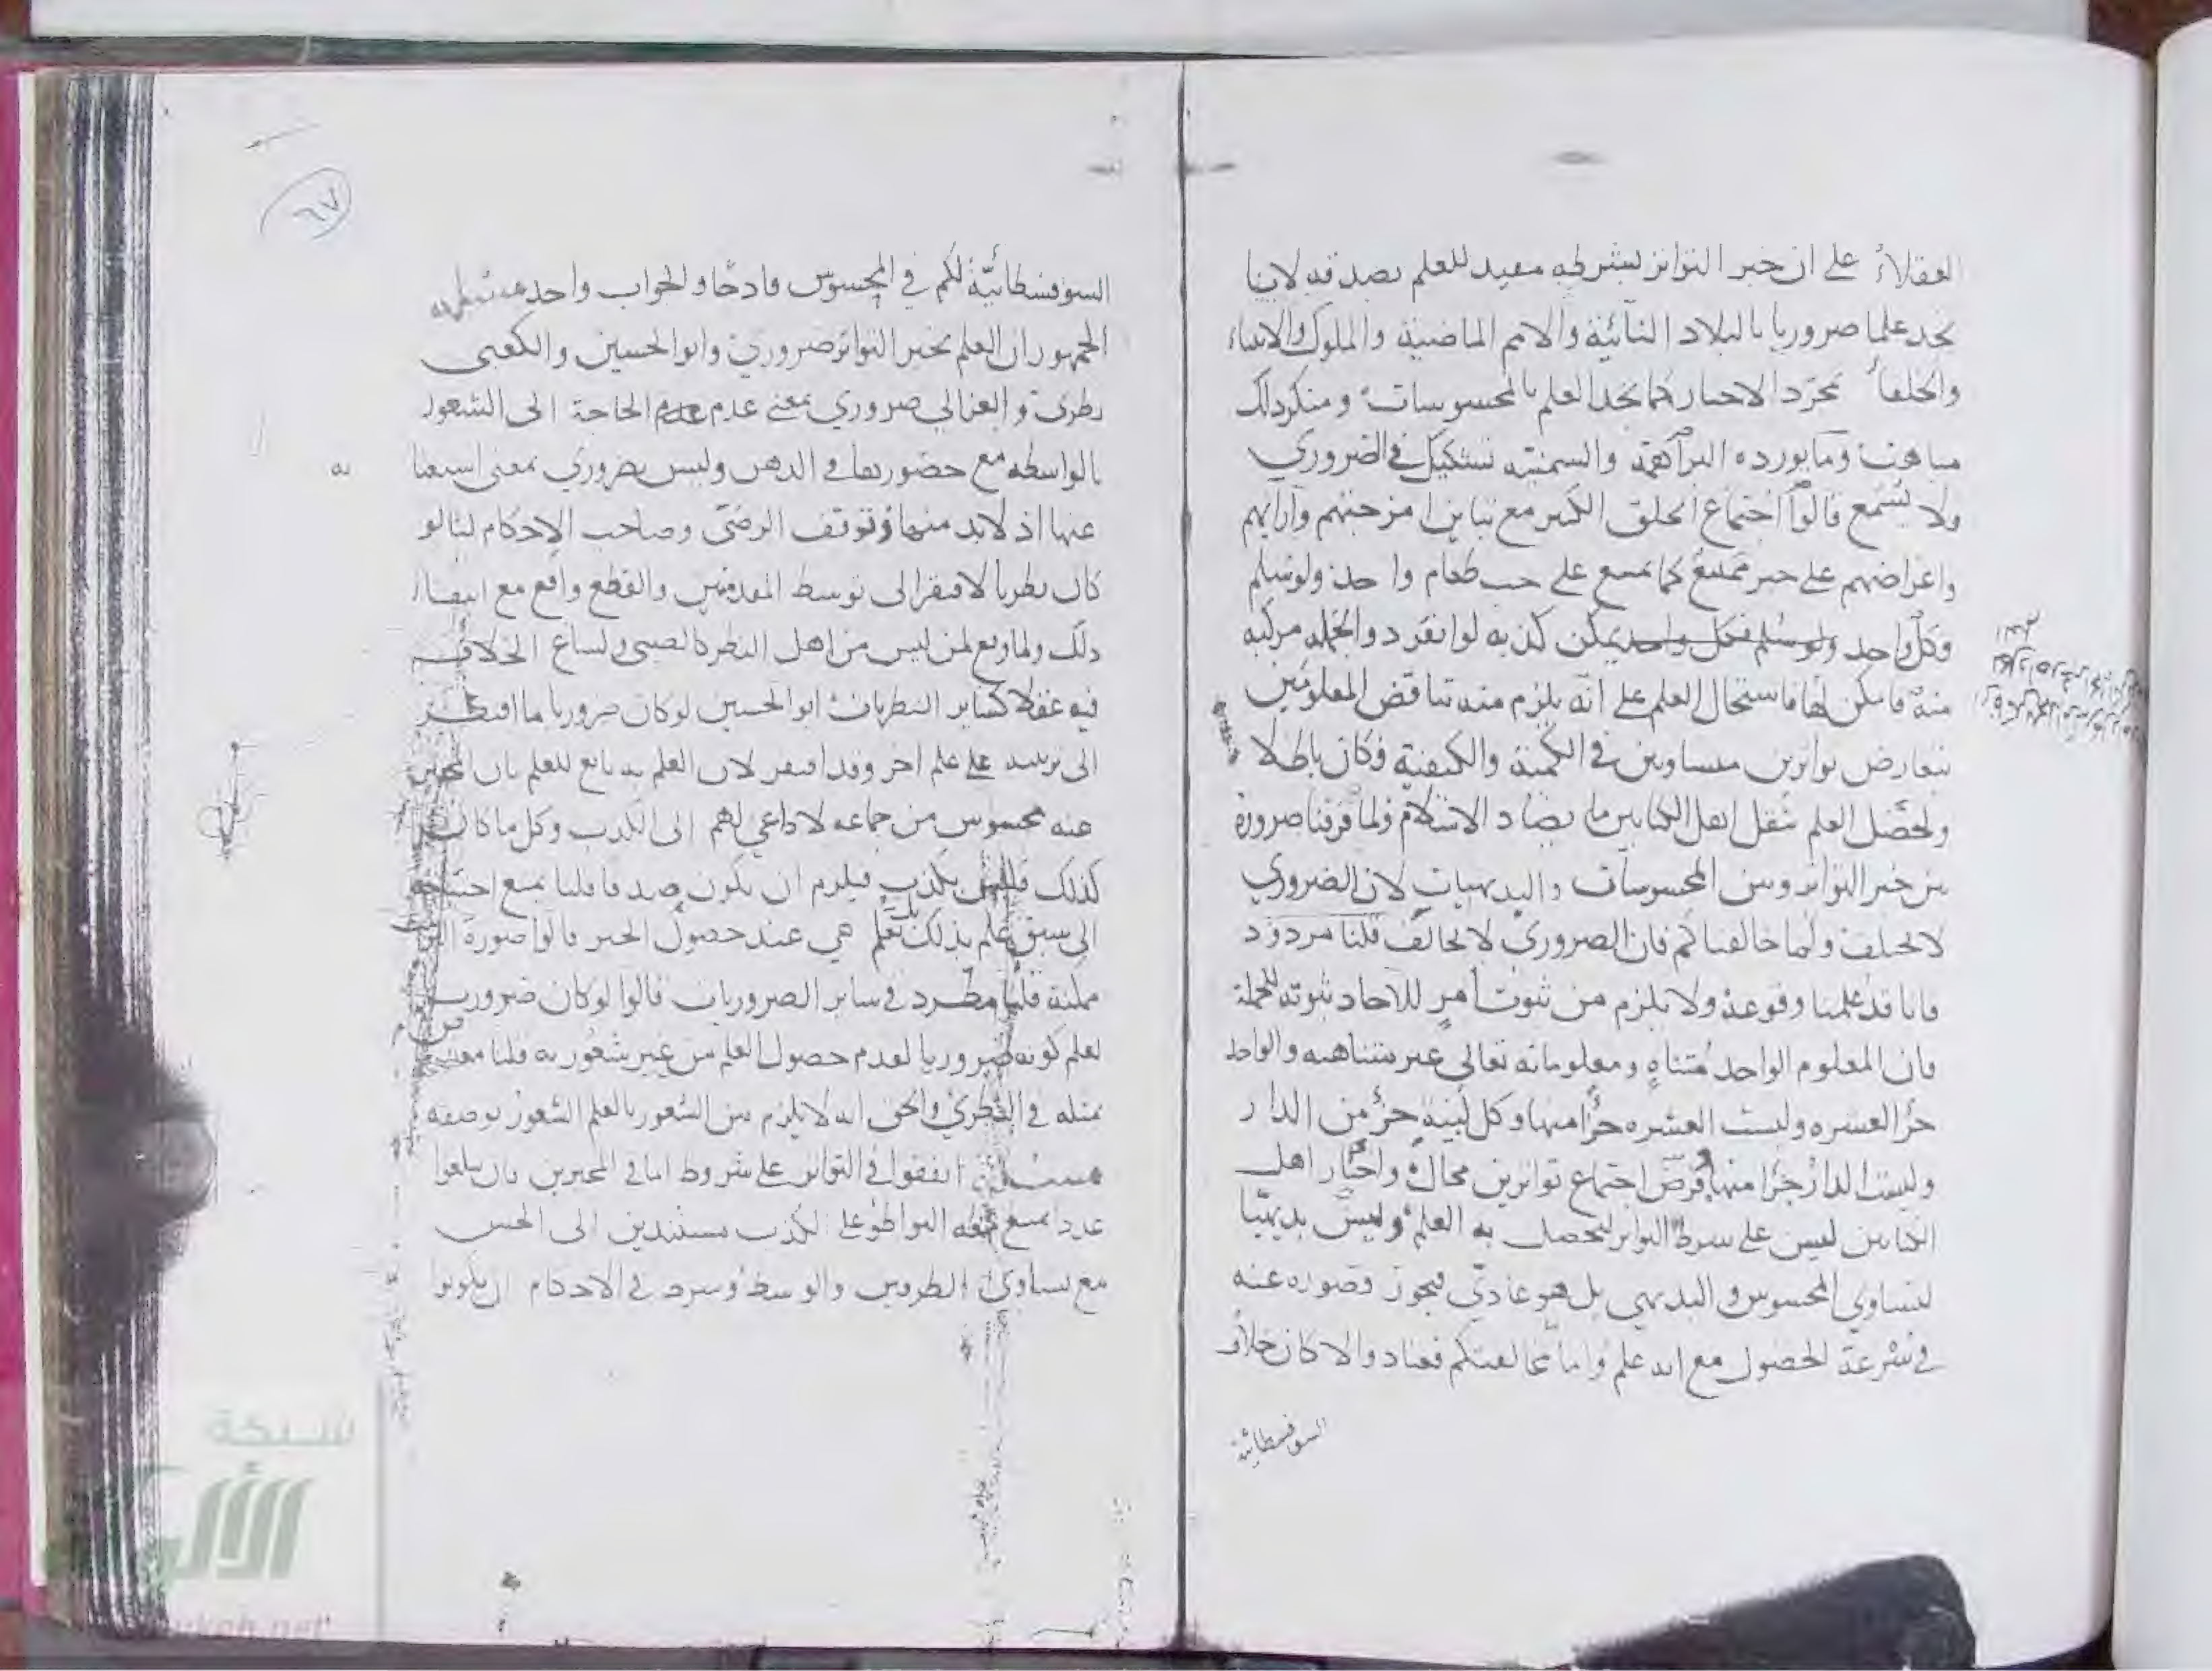 العقلاء على ان خبر التواتر بشرطه مفيد للعلم بصدقه لانا
نجد علما ضروريا بالبلاد النائية والامم الماضية والملوك والانبياء
والخلفاء بمجرد الاخبار كما نجد العلم بالمحسوسات ومنكر ذلك
مباهت وما يورده البراهمة والسمنية تشكيك في الضروري
ولا يسمع قالوا اجتماع الخلق الكثير مع تباين امزجتهم وآرائهم
واغراضهم على خبر ممتنع كما يمتنع على حب طعام واحد ولو سلم
وكل واحد ولو سلم فكل واحد يمكن كذبه لو انفرد والجملة مركبة
منه فامكن لها فاستحال العلم على انه يلزم منه تناقض المعلومين
بتعارض تواترين متساويين في الكمية والكيفية فكان باطلا
ولحصل العلم بنقل اهل الكتابين ما يضاد الاسلام ولما فرقنا ضرورة
بين خبر التواتر وبين المحسوسات والبديهيات لان الضروري
لا يختلف ولما خالفناكم فان الضروري لا يخالف قلنا مردود
فانا قد علمنا وقوعه ولا يلزم من ثبوت امر للآحاد ثبوته للجملة
فان المعلوم الواحد متناه ومعلوماته تعالى غير متناهية والواحد
جزء العشرة وليست العشرة جزءا منها وكل لبنة جزء من الدار
وليست الدار جزءا منها وفرض اجتماع تواترين محال واخبار اهل
الكتابين ليس على شرط التواتر ليحصل به العلم وليس بديهيا
ليتساوى المحسوس والبديهي بل هو عادي فيجوز قصوره عنه
في سرعة الحصول مع انه علم واما مخالفتكم فعناد والا كان خلاف
السوفسطائية
٦٧
السوفسطائية لكم في المحسوس قادحا والجواب واحد
الجمهور ان العلم بخبر التواتر ضروري وابو الحسين والكعبي
نظري والغزالي ضروري بمعنى عدم الحاجة الى الشعور
بالواسطة مع حضورها في الذهن وليس بضروري بمعنى استغنا
به
عنها اذ لا بد منها وتوقف الرضي وصاحب الاحكام لنا لو
كان نظريا لافتقر الى توسط المقدمتين والقطع واقع مع انتفاء
ذلك ولما وقع لمن ليس من اهل النظر كالصبي ولساغ الخلاف
فيه عقلا كسائر النظريات ابو الحسين لو كان ضروريا ما افتقر
الى ترتيبه على علم اخر وقد افتقر لان العلم به تابع للعلم بان المخبر
عنه محسوس من جماعة لا داعي لهم الى الكذب وكل ما كان
كذلك فليس بكذب فيلزم ان يكون صدقا قلنا يمنع احتياجه
الى سبق علم بذلك بل تعلم هي عند حصول الخبر قالوا صورة
ممكنة قلنا مطرد في سائر الضروريات قالوا لو كان ضروريا
لعلم كونه ضروريا لعدم حصول العلم من غير شعور به قلنا معارض
بمثله في النظري والحق انه لا يلزم من الشعور بالعلم الشعور بوصفه
مسئلة اتفقوا في التواتر على شروط اما في المخبرين فان يبلغوا
عددا يمتنع معه التواطؤ على الكذب مستندين الى الحس
مع تساوي الطرفين والوسط وشرط في الاحكام ان يكونوا
شبكة